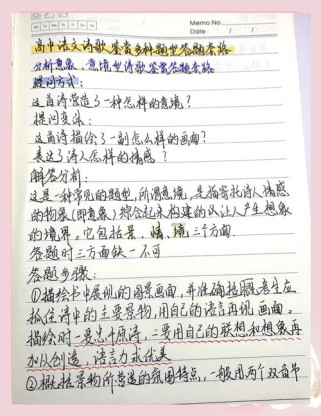 Memo No.
Date / /
高中语文诗歌鉴赏多种题型答题套路
分析意象、意境型诗歌鉴赏答题套路
提问方式:
这首诗营造了一种怎样的意境?
提问变体:
这首诗描绘了一副怎么样的画面?
表达了诗人怎样的情感?
解答分析:
这是一种常见的题型,所谓意境,是指寄托诗人情感
的物象(即意象)综合起来构建的以让人产生想象
的境界。它包括景、情、境三个方面
答题时三方面缺一不可
答题步骤:
①描绘书中展现的图景画面,并准确抓考生应
抓住诗中的主要景物,用自己的语言再现画面。
描绘时一要忠于原诗,二要用自己的联想和想象再
加以创造,语言力求优美
②概括景物所营造的氛围特点,一般用两个双音节